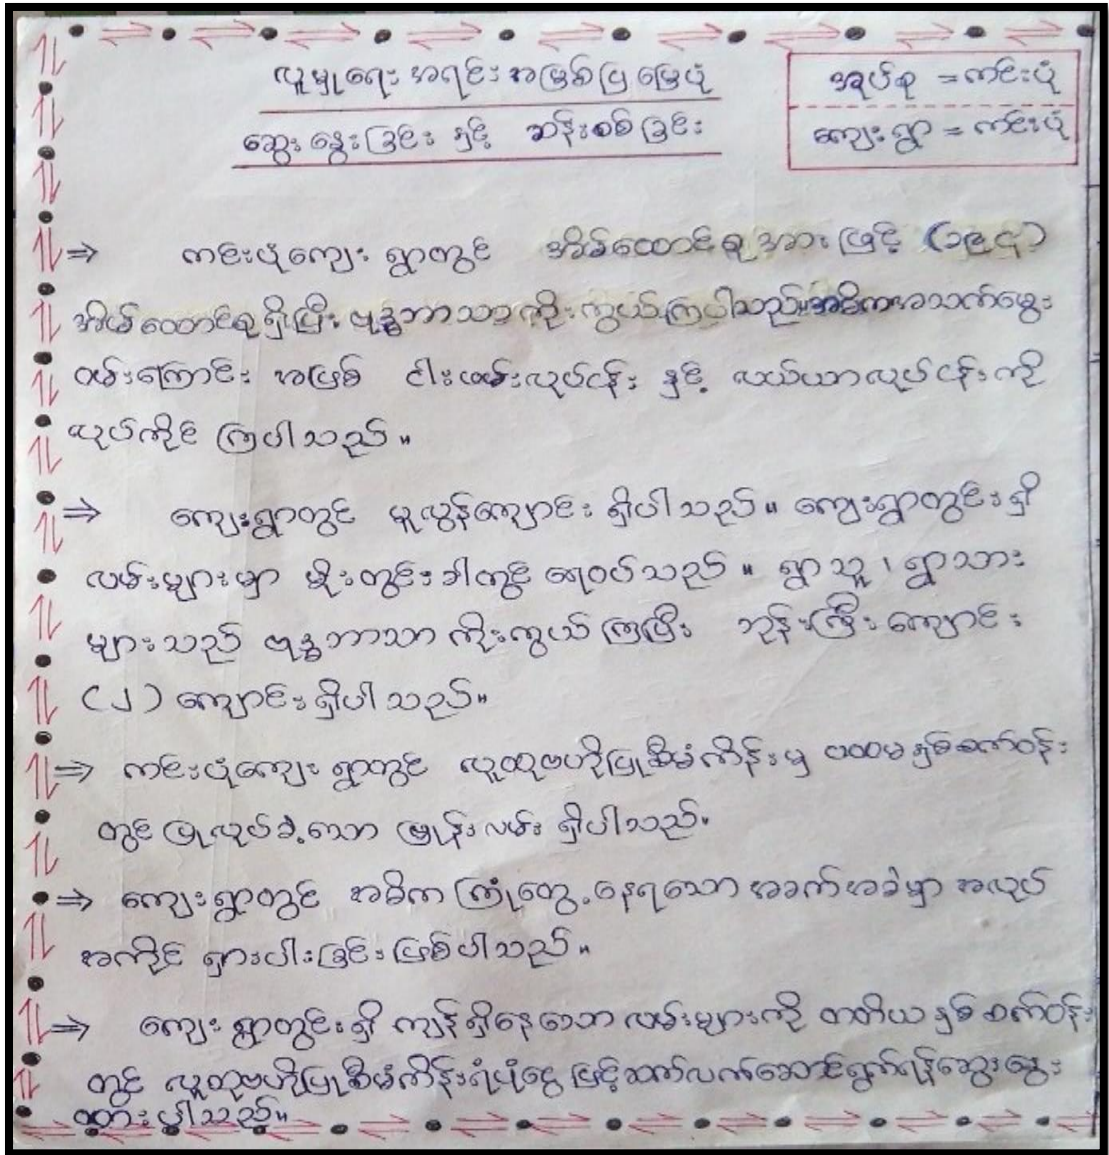 လူမှုရေး အရင်းအမြစ်ပြ မြေပုံ
ဆွေးနွေးခြင်း နှင့် ဆန်းစစ်ခြင်း
အုပ်စု = ကင်းပုံ
ကျေးရွာ = ကင်းပုံ
⇒ ကင်းပုံကျေးရွာတွင် အိမ်ထောင်စုအားဖြင့် (၁၉၄)
အိမ်ထောင်စုရှိပြီး ဗုဒ္ဓဘာသာကိုးကွယ်ကြပါသည်။ အဓိကအသက်မွေး
ဝမ်းကြောင်း အဖြစ် ငါးဖမ်းလုပ်ငန်း နှင့် လယ်ယာလုပ်ငန်းကို
လုပ်ကိုင်ကြပါသည်။
⇒ ကျေးရွာတွင် မူလွန်ကျောင်း ရှိပါသည်။ ကျေးရွာတွင်းရှိ
လမ်းများမှာ မိုးတွင်းခါတွင် ရေဝပ်သည်။ ရွာသူ၊ ရွာသား
များသည် ဗုဒ္ဓဘာသာ ကိုးကွယ်ကြပြီး ဘုန်းကြီးကျောင်း
(၂) ကျောင်းရှိပါသည်။
⇒ ကင်းပုံကျေးရွာတွင် လူထုဗဟိုပြုစီမံကိန်းမှ ပထမနှစ်စက်ဝန်း
တွင် ပြုလုပ်ခဲ့သော မြှုန်းလမ်း ရှိပါသည်။
⇒ ကျေးရွာတွင် အဓိက ကြုံတွေ့နေရသော အခက်အခဲမှာ အလုပ်
အကိုင် ရှားပါးခြင်းဖြစ်ပါသည်။
⇒ ကျေးရွာတွင်းရှိ ကျန်ရှိနေသော လမ်းများကို တတိယနှစ်စက်ဝန်း
တွင် လူထုဗဟိုပြုစီမံကိန်းရံပုံငွေဖြင့်ဆက်လက်ဆောင်ရွက်ရန်ဆွေးနွေး
ထားပါသည်။